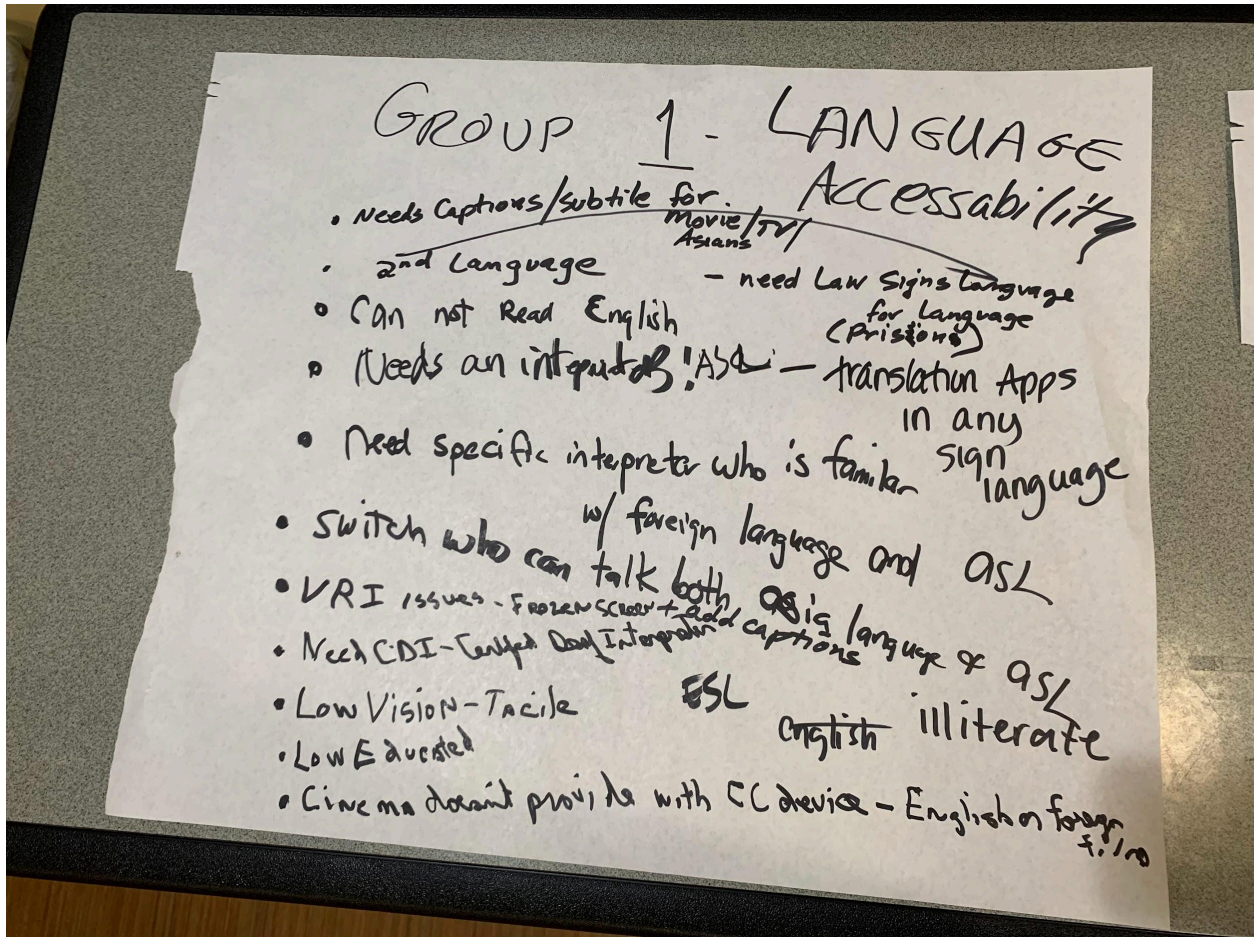 GROUP 1 - LANGUAGE
Accessability
• Needs Captions/subtile for Movie/TV/
Asians
• 2nd Language - need Law Signs Language
for Language
(Pristions)
• Can not Read English
• Needs an ! ASL - translation Apps
in any
sign
language
• Need specific interpreter who is familar
w/ foreign language and ASL
• Switch who can talk both language & ASL
• VRI issues - Frozen Screen + add captions
• Need CDI - Certified Deaf Interpreter
• Low Vision - Tacile
ESL english illiterate
• Low Educated
• Cinema doesn't provide with CC device - English on foreign
films